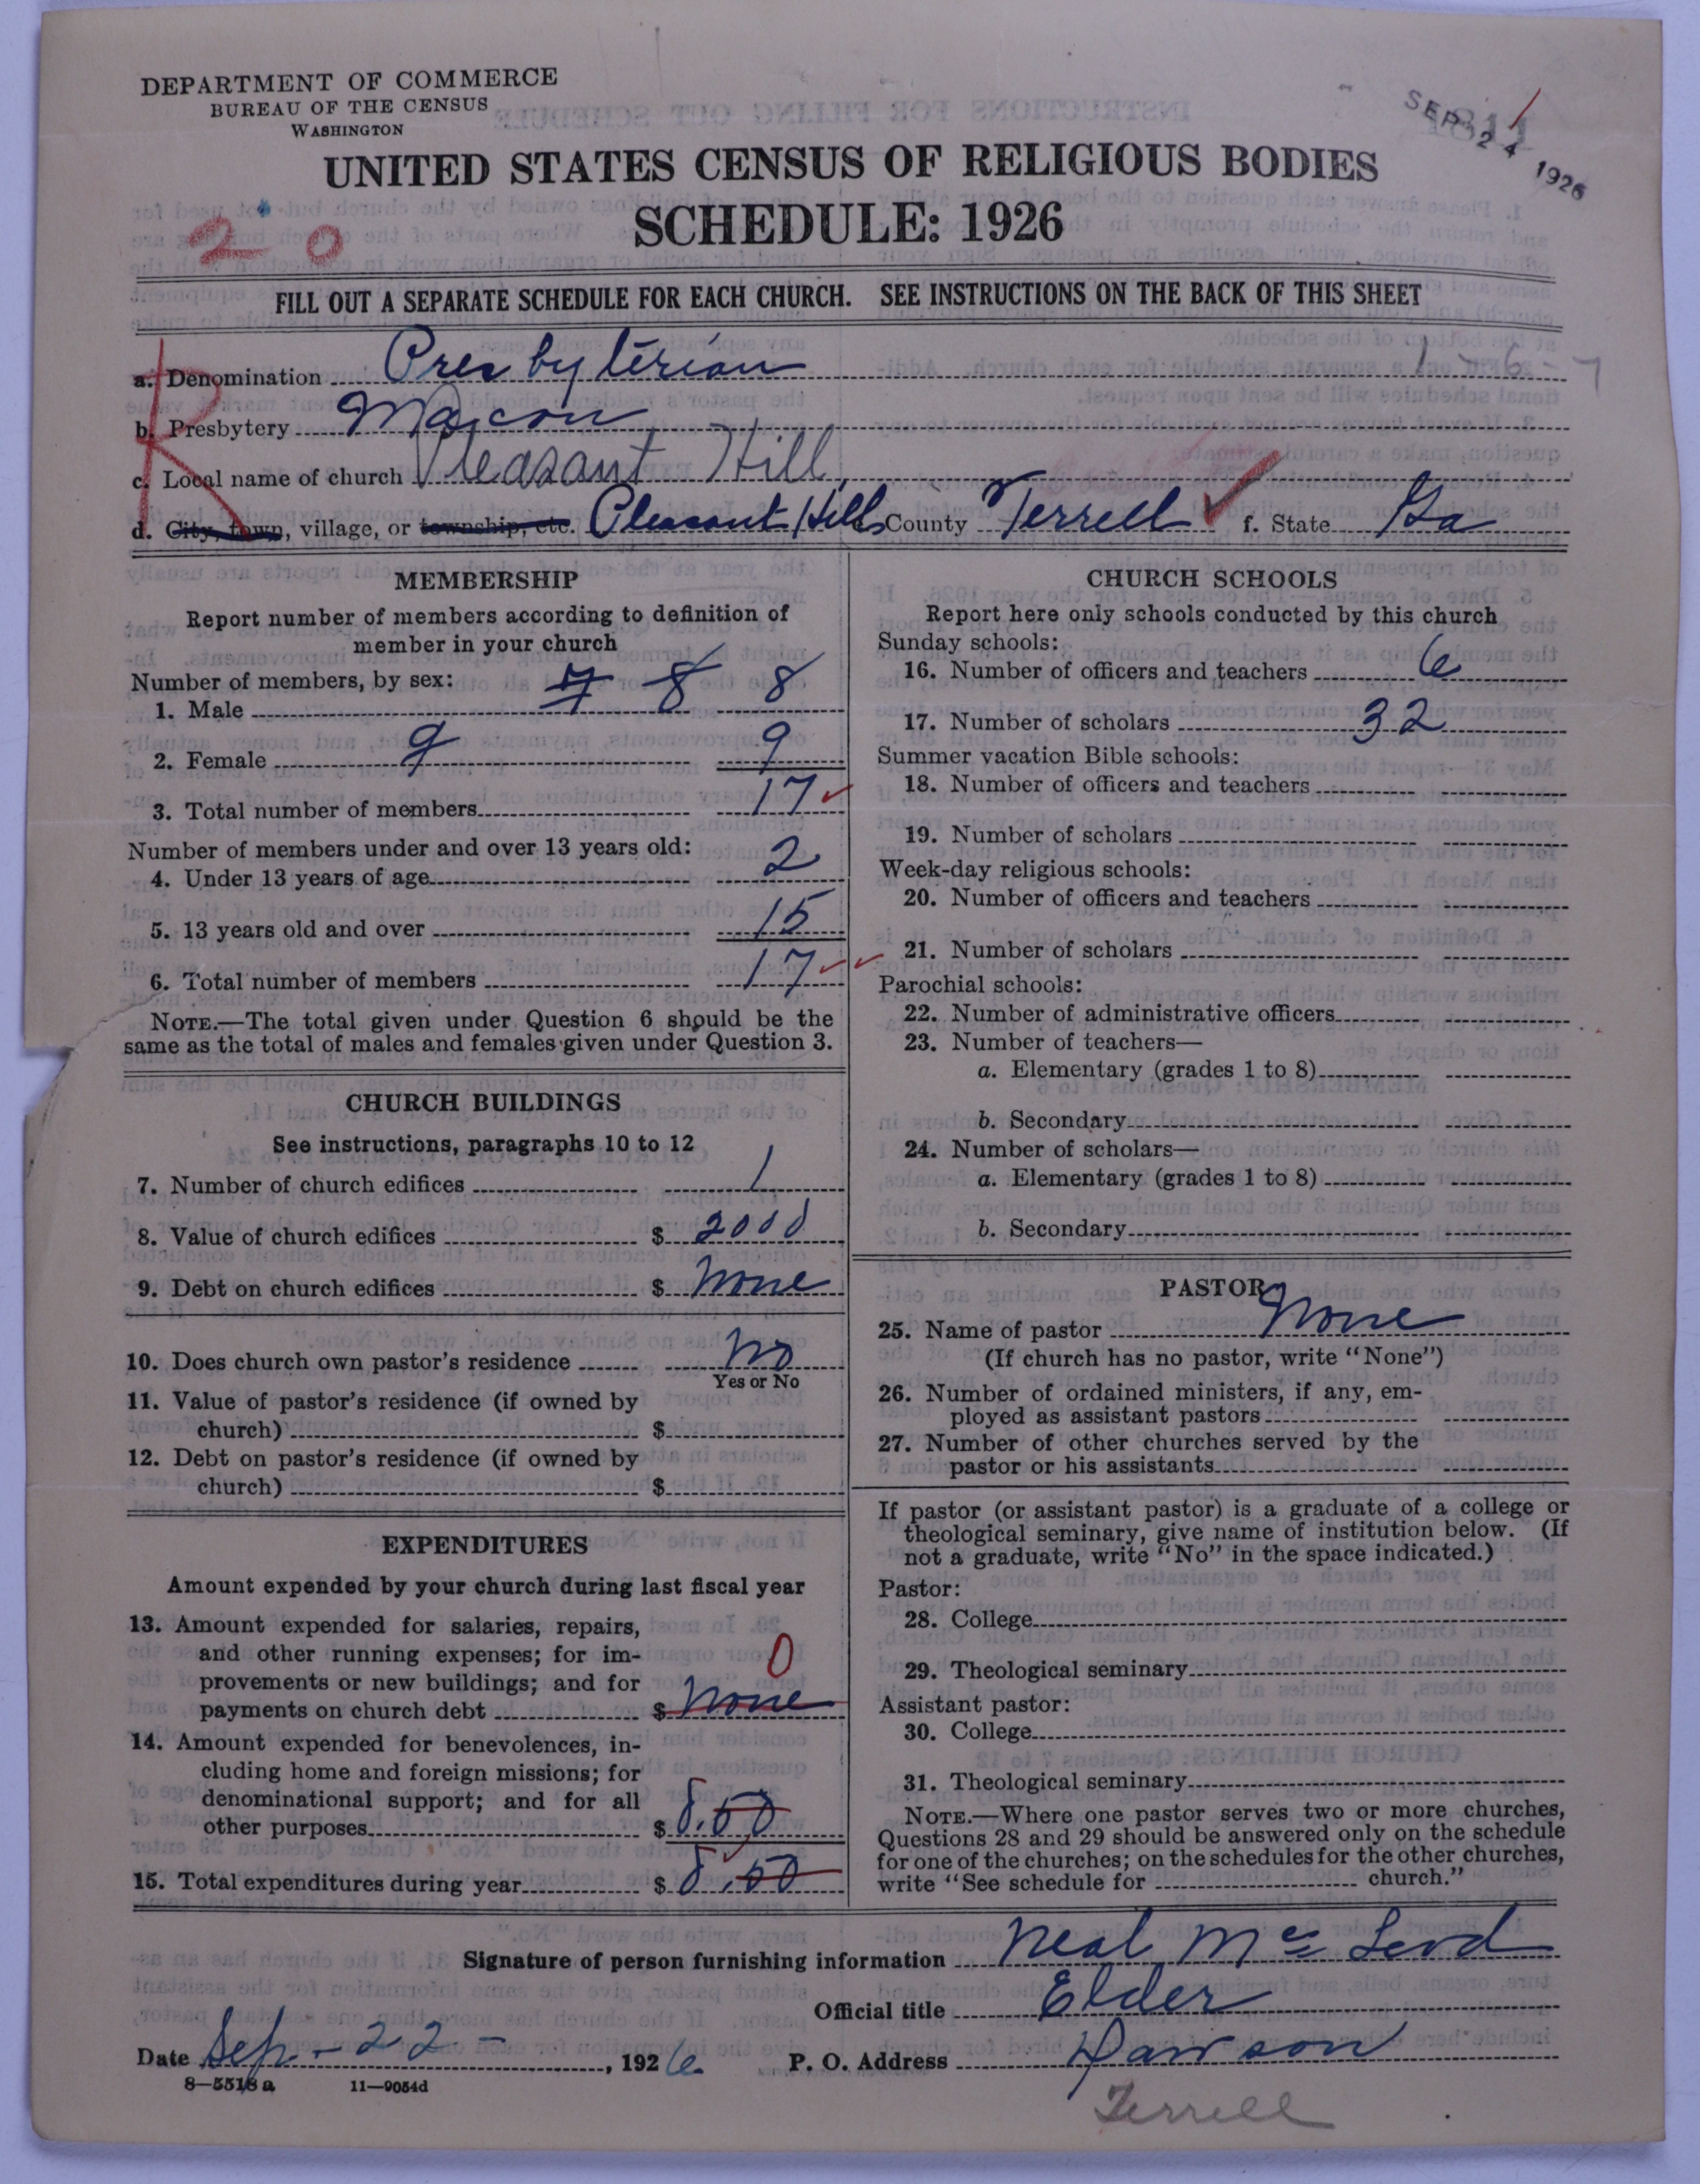 DEPARTMENT OF COMMERCE
BUREAU OF THE CENSUS
WASHINGTON
SEP 24 1926
UNITED STATES CENSUS OF RELIGIOUS BODIES
SCHEDULE: 1926
2 0
FILL OUT A SEPARATE SCHEDULE FOR EACH CHURCH. SEE INSTRUCTIONS ON THE BACK OF THIS SHEET
R
a. Denomination Presbyterian 1-6-7
b. Presbytery Macon
c. Local name of church Pleasant Hill
d. City, town, village, or township, etc. Pleasant Hill County Terrell ✓ f. State Ga
MEMBERSHIP
Report number of members according to definition of
member in your church
Number of members, by sex:
1. Male 7 8 8
2. Female 9 9
3. Total number of members 17 ✓
Number of members under and over 13 years old:
4. Under 13 years of age 2
5. 13 years old and over 15
6. Total number of members 17 ✓ ✓
NOTE.—The total given under Question 6 should be the
same as the total of males and females given under Question 3.
CHURCH BUILDINGS
See instructions, paragraphs 10 to 12
7. Number of church edifices 1
8. Value of church edifices $ 2000
9. Debt on church edifices $ None
10. Does church own pastor's residence No
Yes or No
11. Value of pastor's residence (if owned by
church) $
12. Debt on pastor's residence (if owned by
church) $
EXPENDITURES
Amount expended by your church during last fiscal year
13. Amount expended for salaries, repairs,
and other running expenses; for im-
provements or new buildings; and for 0
payments on church debt $ None
14. Amount expended for benevolences, in-
cluding home and foreign missions; for
denominational support; and for all
other purposes $ 8.50
15. Total expenditures during year $ 8.50
CHURCH SCHOOLS
Report here only schools conducted by this church
Sunday schools:
16. Number of officers and teachers 6
17. Number of scholars 32
Summer vacation Bible schools:
18. Number of officers and teachers
19. Number of scholars
Week-day religious schools:
20. Number of officers and teachers
21. Number of scholars
Parochial schools:
22. Number of administrative officers
23. Number of teachers—
a. Elementary (grades 1 to 8)
b. Secondary
24. Number of scholars—
a. Elementary (grades 1 to 8)
b. Secondary
PASTOR
25. Name of pastor None
(If church has no pastor, write "None")
26. Number of ordained ministers, if any, em-
ployed as assistant pastors
27. Number of other churches served by the
pastor or his assistants
If pastor (or assistant pastor) is a graduate of a college or
theological seminary, give name of institution below. (If
not a graduate, write "No" in the space indicated.)
Pastor:
28. College
29. Theological seminary
Assistant pastor:
30. College
31. Theological seminary
NOTE.—Where one pastor serves two or more churches,
Questions 28 and 29 should be answered only on the schedule
for one of the churches; on the schedules for the other churches,
write "See schedule for church."
Signature of person furnishing information Neal McLeod
Official title Elder
Date Sep - 22 -, 1926 P. O. Address Dawson
8—5518 a 11—9054d
Terrell